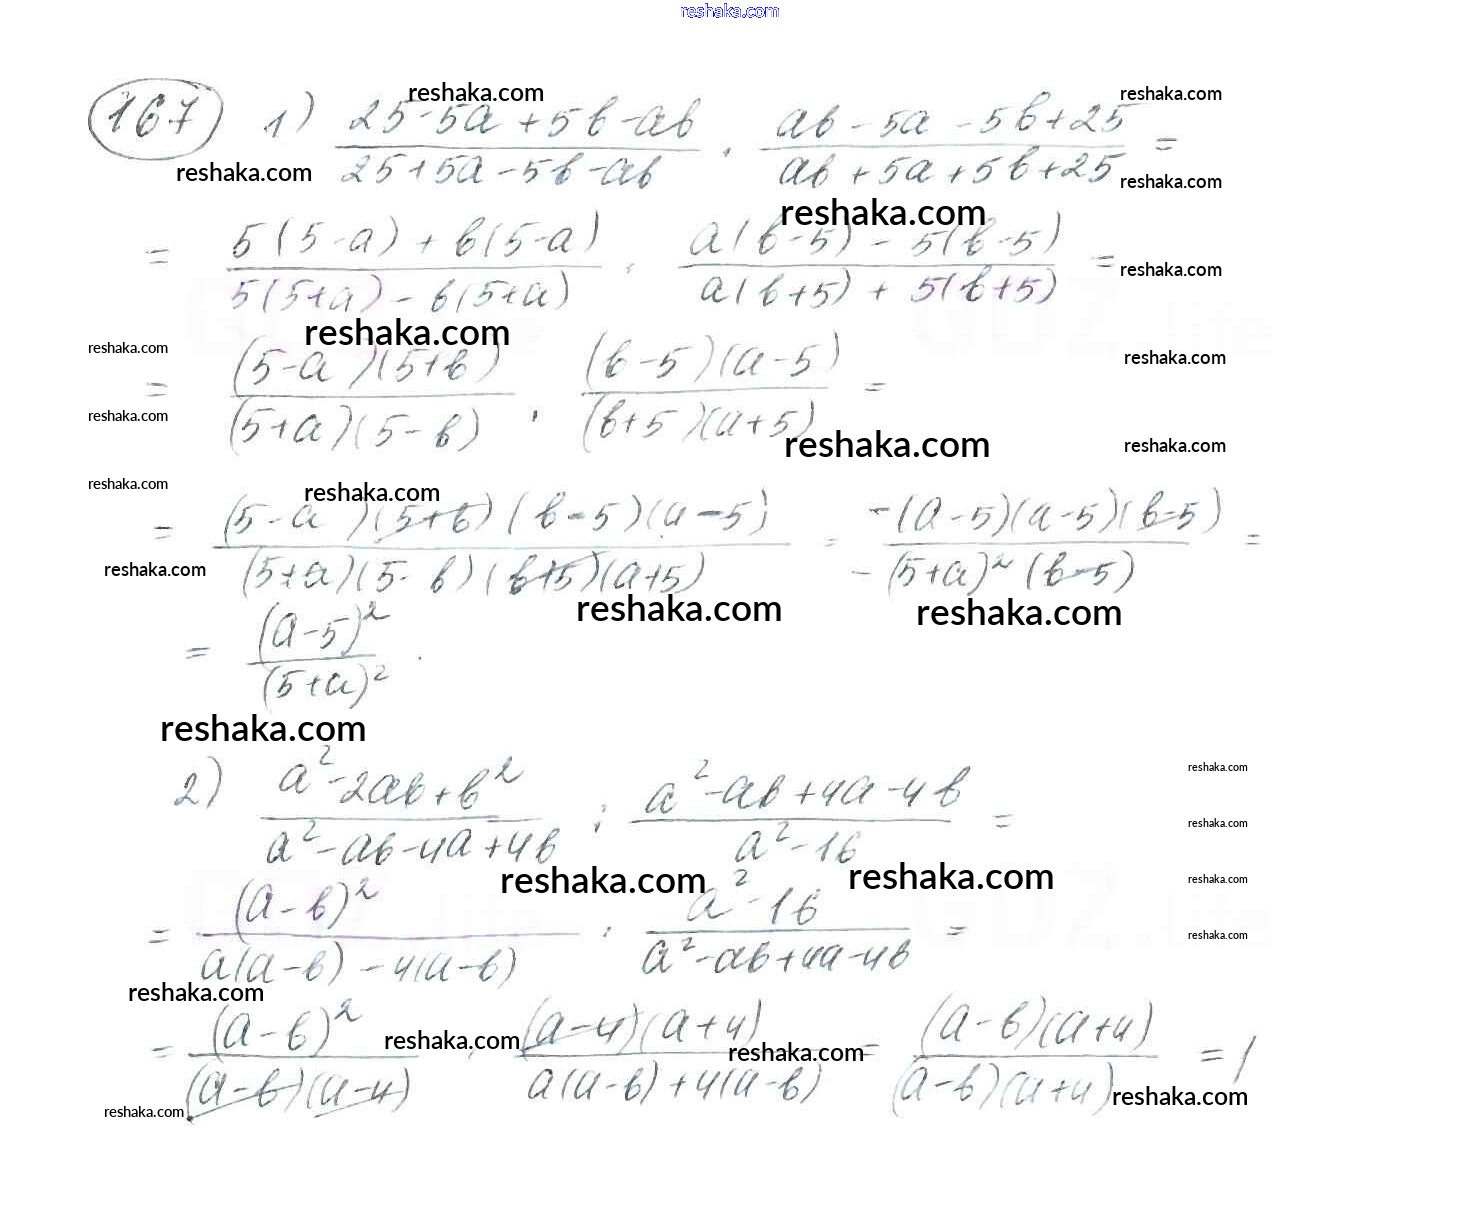 reshaka.com
reshaka.com reshaka.com
167 1) \frac{25-5a+5b-ab}{25+5a-5b-ab} \cdot \frac{ab-5a-5b+25}{ab+5a+5b+25} =
reshaka.com reshaka.com
reshaka.com
= \frac{5(5-a)+b(5-a)}{5(5+a)-b(5+a)} \cdot \frac{a(b-5)-5(b-5)}{a(b+5)+5(b+5)} =
reshaka.com
reshaka.com
reshaka.com reshaka.com
= \frac{(5-a)(5+b)}{(5+a)(5-b)} \cdot \frac{(b-5)(a-5)}{(b+5)(a+5)} =
reshaka.com
reshaka.com reshaka.com
reshaka.com reshaka.com
= \frac{(5-a)(5+b)(b-5)(a-5)}{(5+a)(5-b)(b+5)(a+5)} = \frac{-(a-5)(a-5)(b-5)}{-(5+a)^2(b-5)} =
reshaka.com
reshaka.com reshaka.com
= \frac{(a-5)^2}{(5+a)^2}.
reshaka.com
2) \frac{a^2-2ab+b^2}{a^2-ab-4a+4b} : \frac{a^2-ab+4a-4b}{a^2-16} =
reshaka.com
reshaka.com
reshaka.com reshaka.com reshaka.com
= \frac{(a-b)^2}{a(a-b)-4(a-b)} \cdot \frac{a^2-16}{a^2-ab+4a-4b} =
reshaka.com
reshaka.com
= \frac{(a-b)^2}{(a-b)(a-4)} \cdot \frac{(a-4)(a+4)}{a(a-b)+4(a-b)} = \frac{(a-b)(a+4)}{(a-b)(a+4)} = 1
reshaka.com reshaka.com
reshaka.com reshaka.com